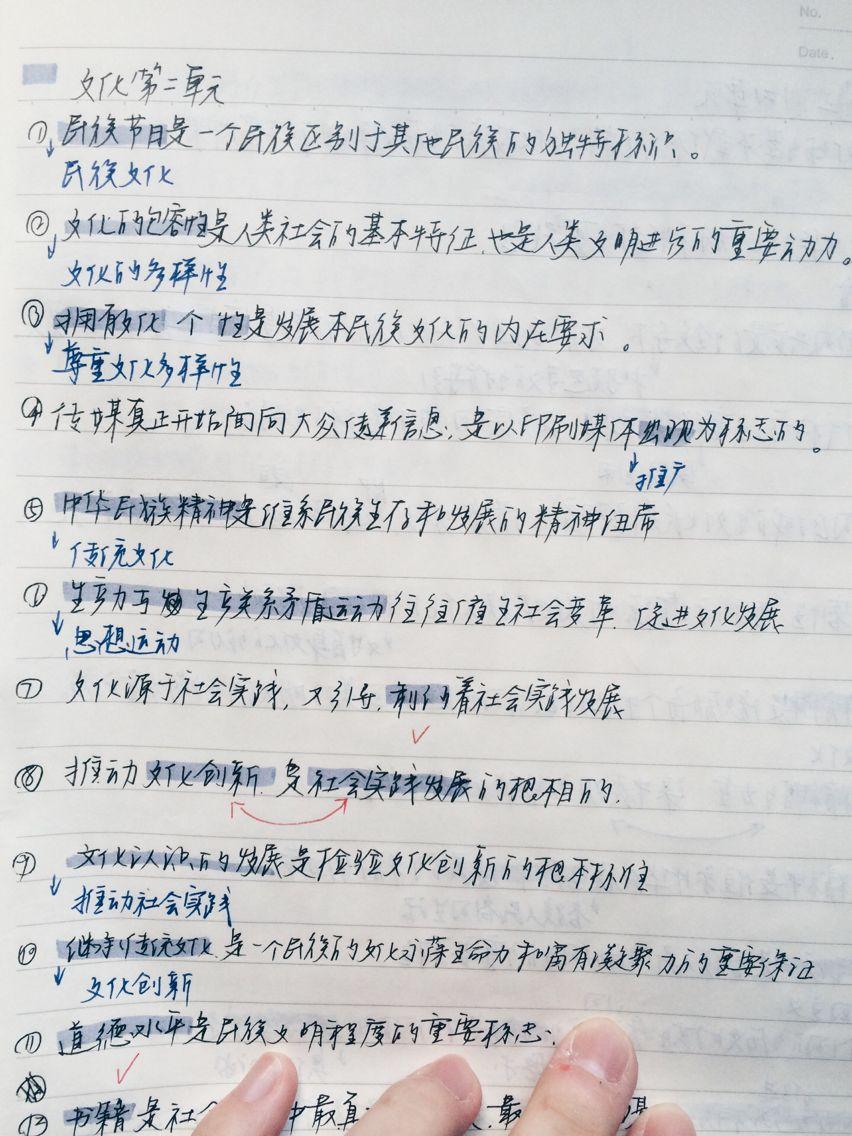 No.
Date.
文化第二单元
① 民族节日是一个民族区别于其他民族的独特标识。
民族文化
② 文化的包容性是人类社会的基本特征,也是人类文明进步的重要动力。
文化的多样性
③ 拥有文化个性是发展本民族文化的内在要求。
尊重文化多样性
④ 传媒真正开始面向大众传递信息,是以印刷媒体出现为标志的。
推广
⑤ 中华民族精神是维系民族生存和发展的精神纽带
传统文化
⑥ 生产力与生产关系矛盾运动往往催生社会变革,促进文化发展
思想运动
⑦ 文化源于社会实践,又引导,制约着社会实践发展
⑧ 推动文化创新,是社会实践发展的根本目的,
⑨ 文化认识的发展是检验文化创新的根本标准
推动社会实践
⑩ 继承传统文化,是一个民族的文化永葆生命力和富有凝聚力的重要保证
文化创新
⑪ 道德水平是民族文明程度的重要标志;
⑬ 书籍是社会 中最